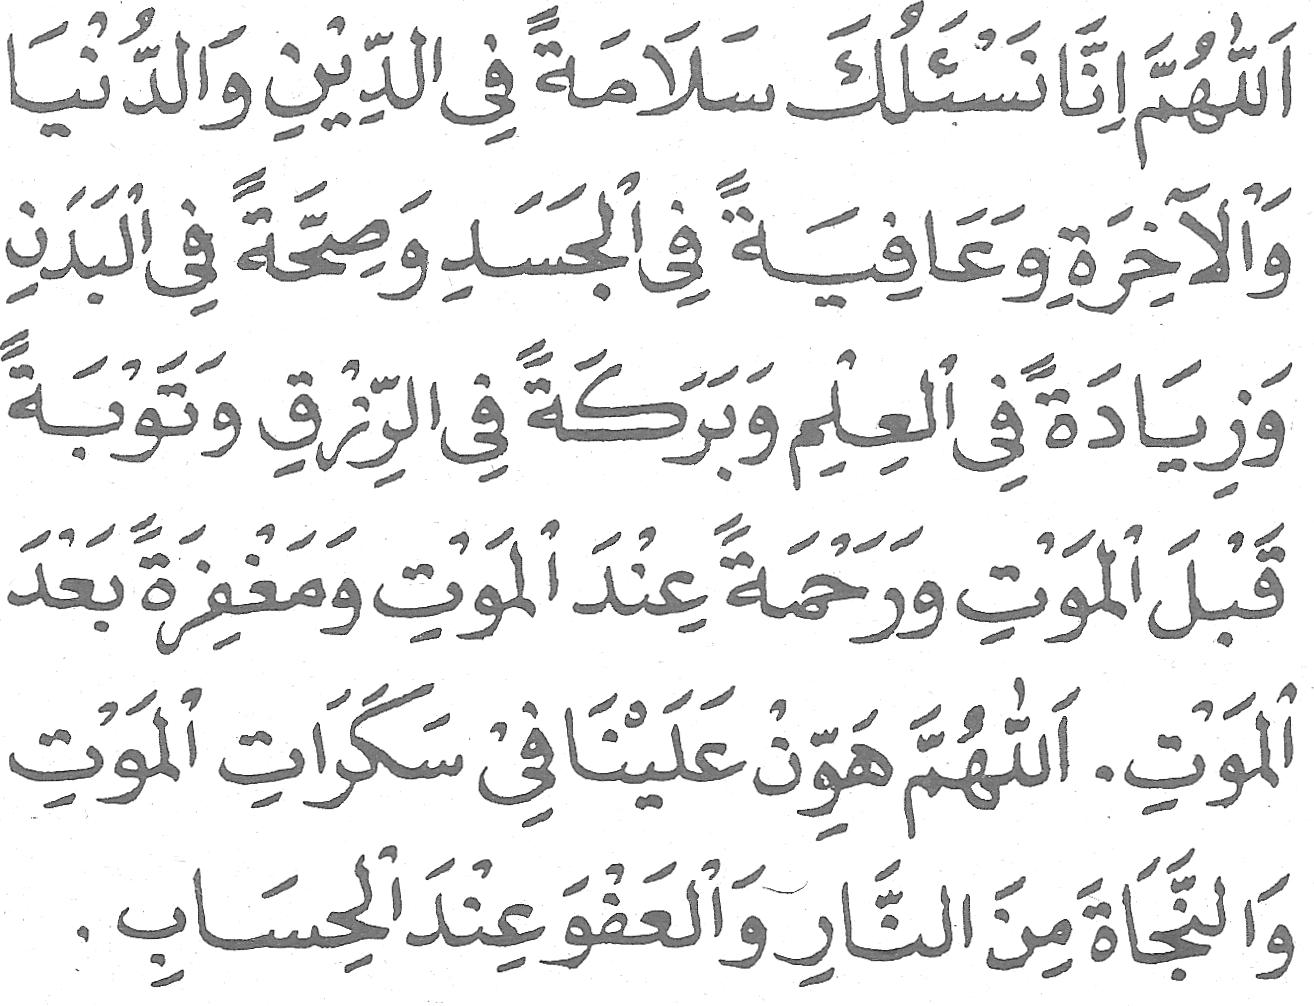 اَللّٰهُمَّ اِنَّا نَسْئَلُكَ سَلَامَةً فِى الدِّيْنِ وَالدُّنْيَا
وَاْلآخِرَةِ وَعَافِيَةً فِى اْلجَسَدِ وَصِحَّةً فِى اْلبَدَنِ
وَزِيَادَةً فِى اْلعِلْمِ وَبَرَكَةً فِى الرِّزْقِ وَتَوْبَةً
قَبْلَ اْلمَوْتِ وَرَحْمَةً عِنْدَ اْلمَوْتِ وَمَغْفِرَةً بَعْدَ
اْلمَوْتِ. اَللّٰهُمَّ هَوِّنْ عَلَيْنَا فِىْ سَكَرَاتِ اْلمَوْتِ
وَالنَّجَاةَ مِنَ النَّارِ وَاْلعَفْوَ عِنْدَ اْلحِسَابِ.